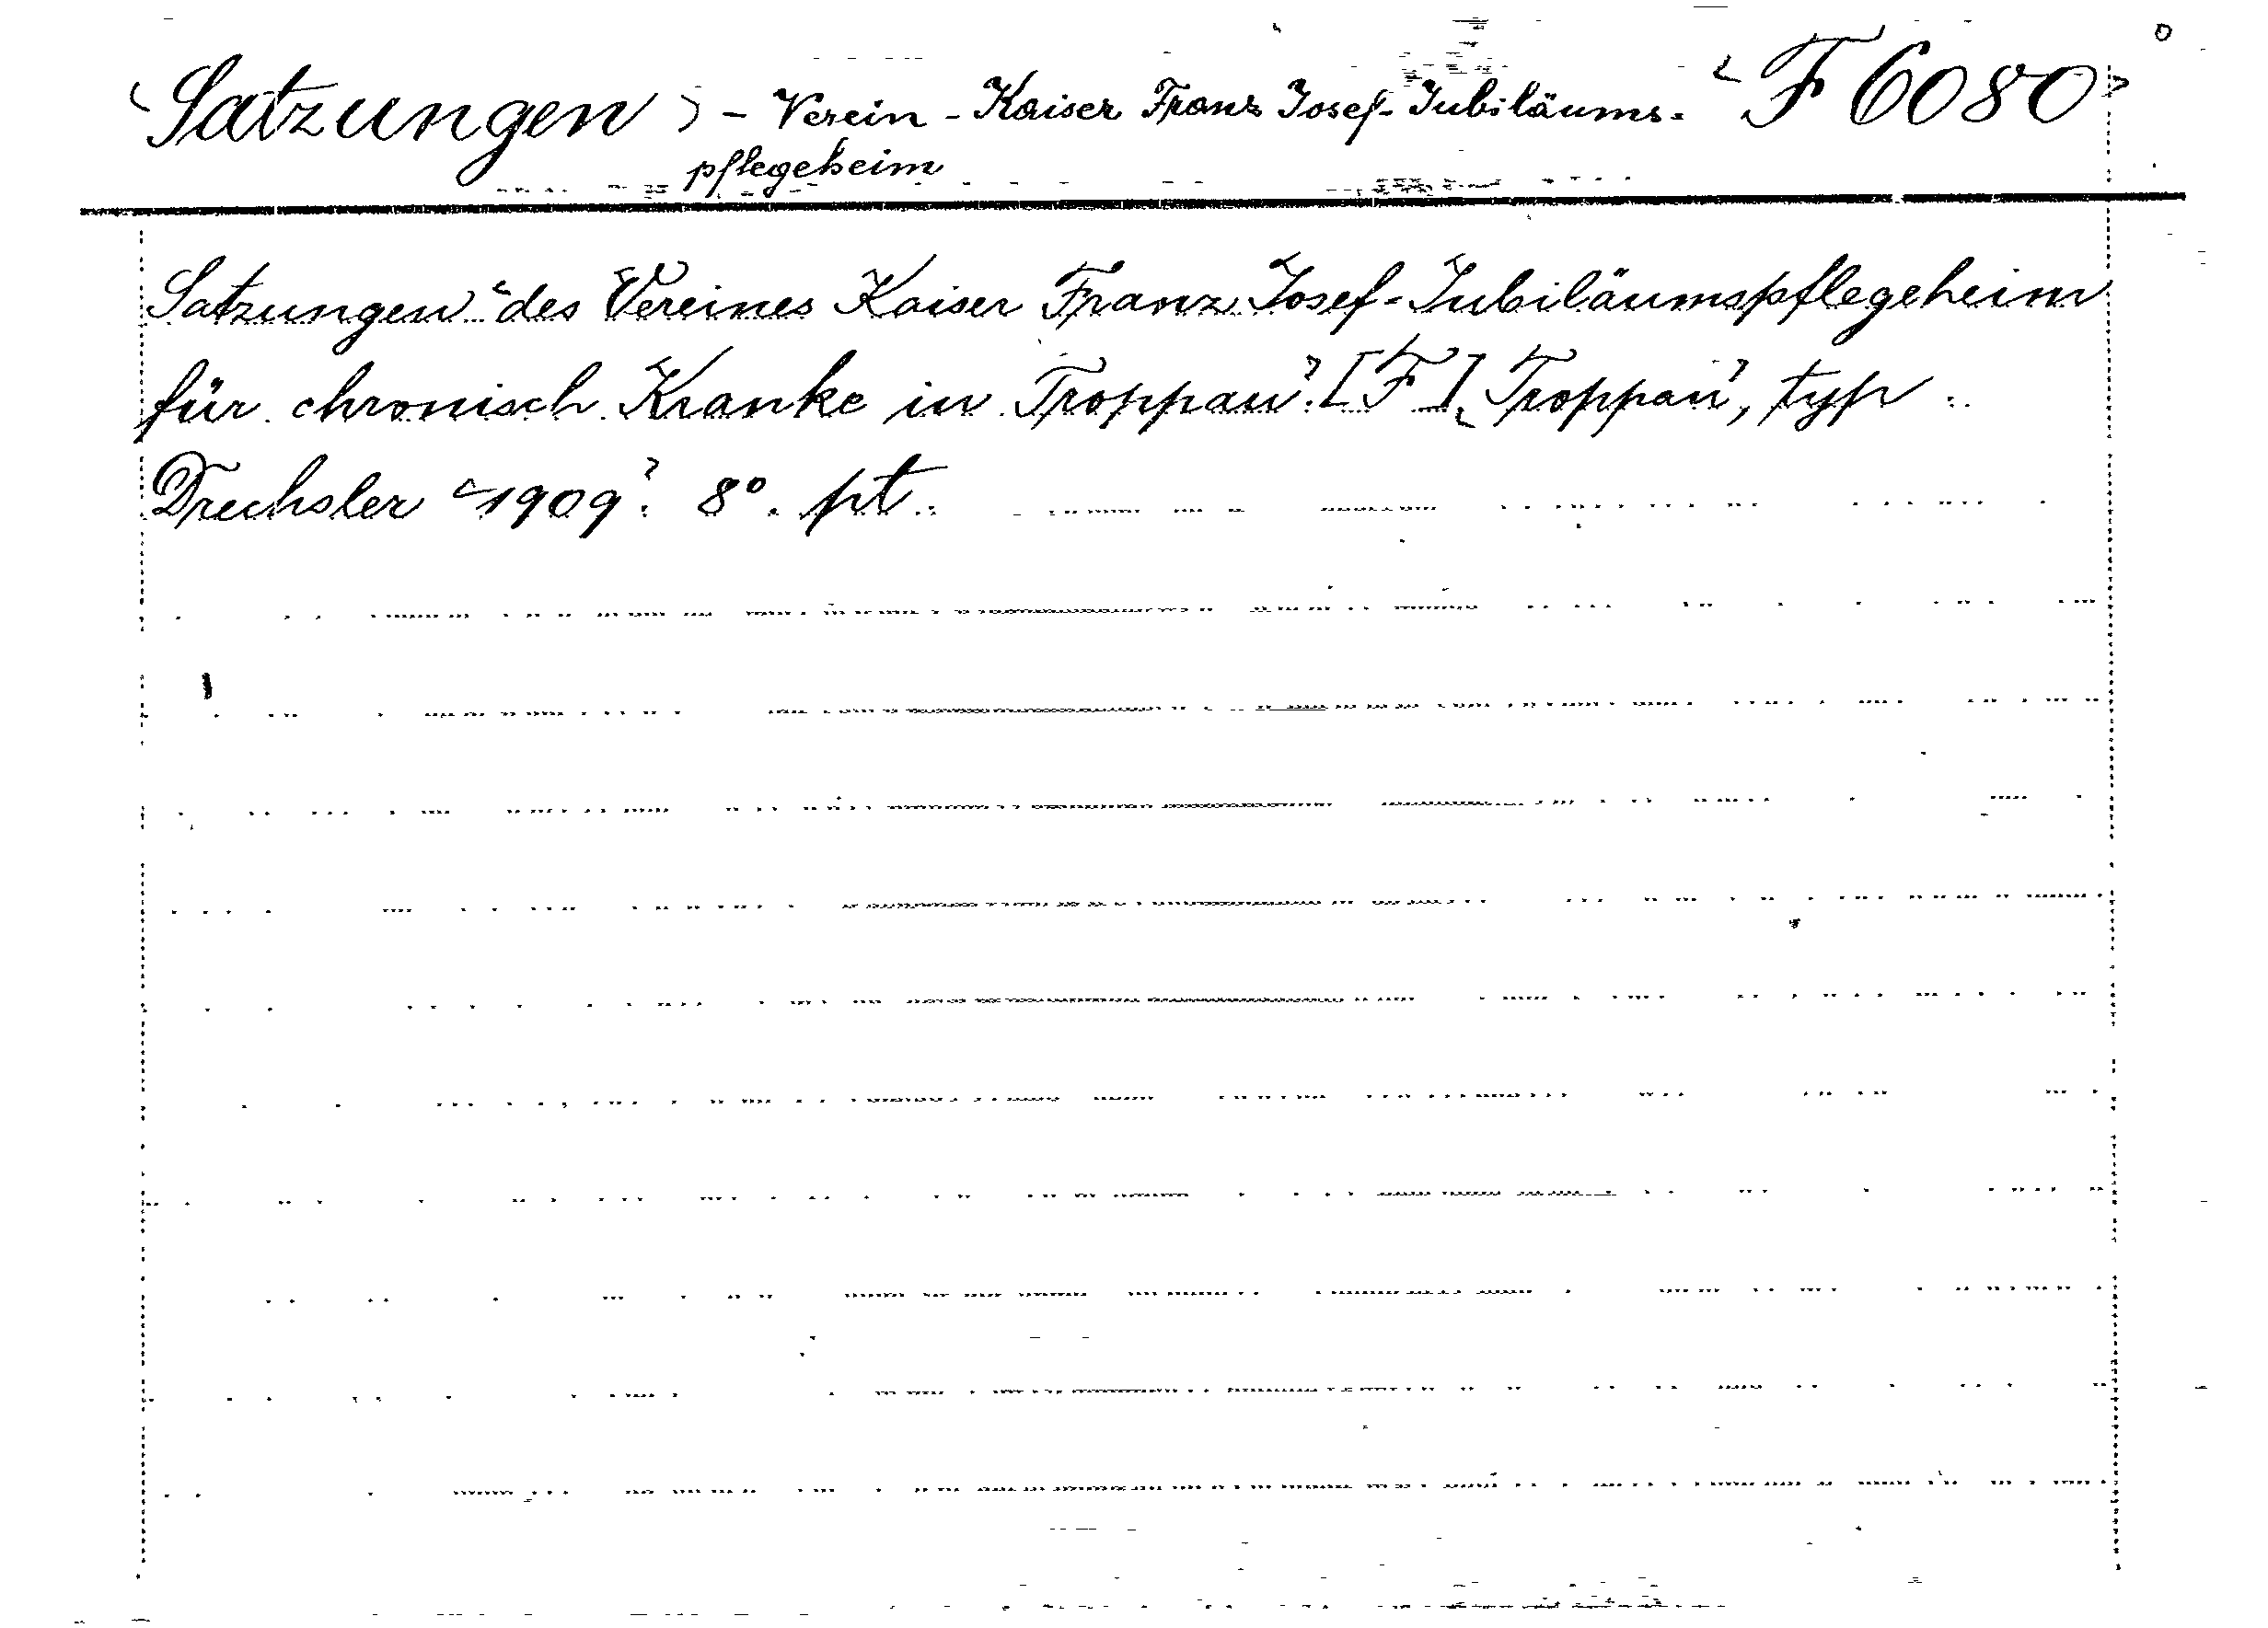 ‹Satzungen› - Verein - Kaiser Franz Josef-Jubiläums- ‹F 6080›
pflegeheim
Satzungen ‹des Vereines Kaiser Franz Josef-Jubiläumspflegeheim
für chronisch Kranke in Troppau›. [F.] ‹Troppau›, typ.
Drechsler ‹1909›. 8°. pt.